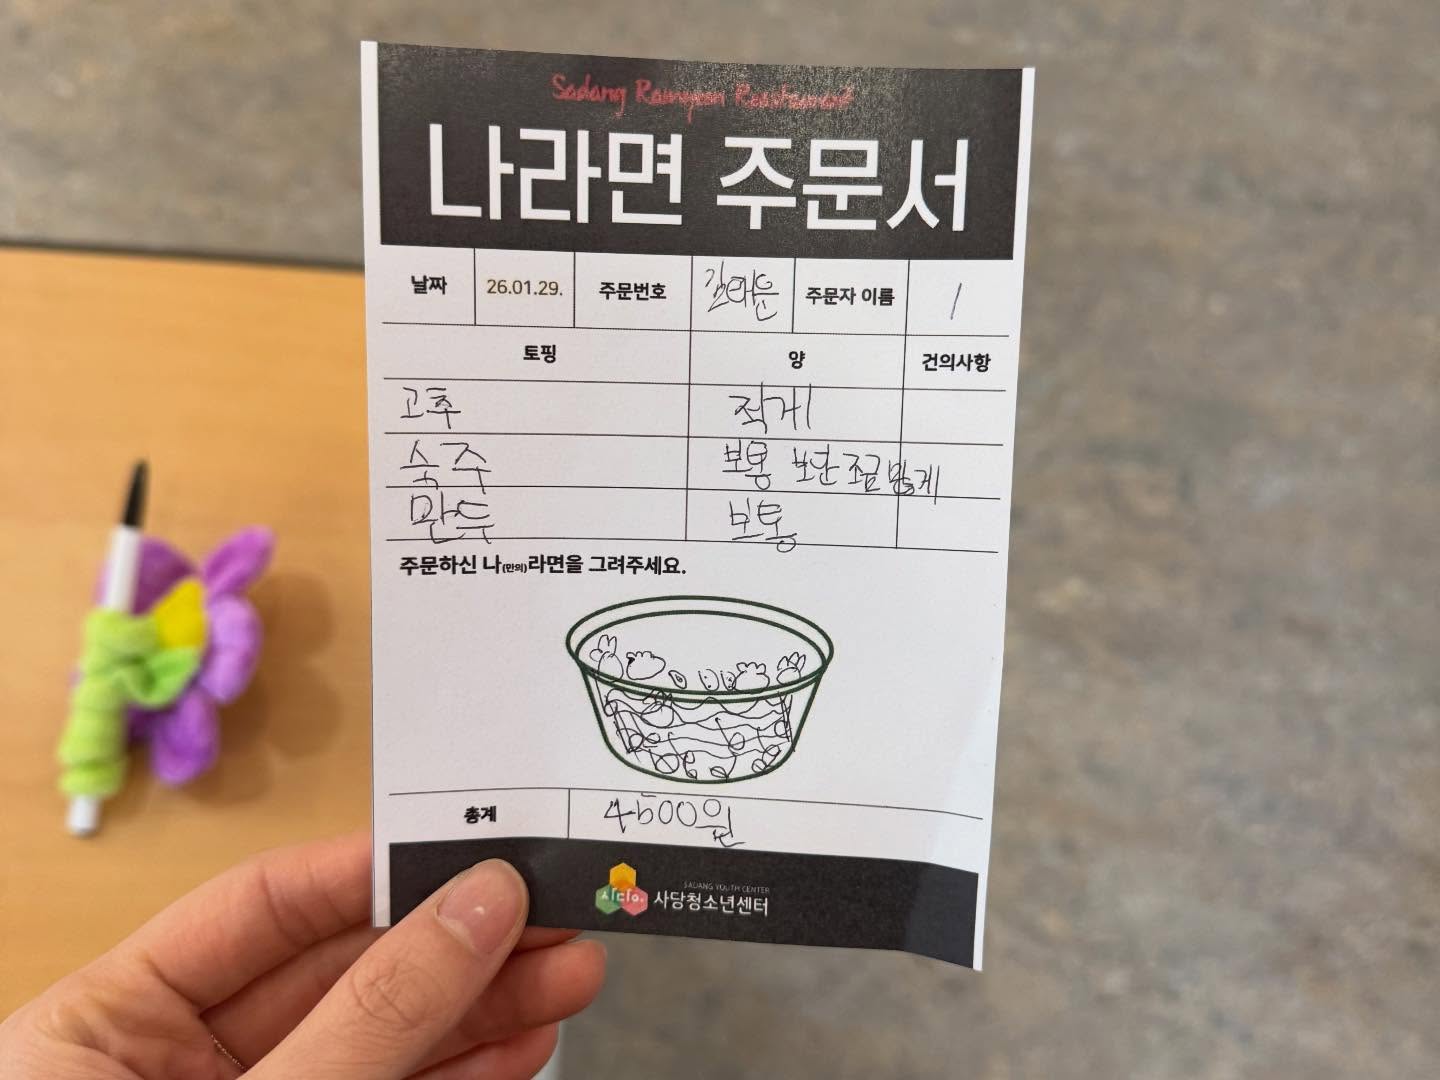 Sadang Ramyeon Reastaurant
나라면 주문서
날짜 26.01.29. 주문번호 김태윤 주문자 이름 1
토핑 양 건의사항
고추 적게
숙주 보통 보단 조금 많게
만두 보통
주문하신 나(만의)라면을 그려주세요.
총계 4500원
시다유. SADANG YOUTH CENTER
사당청소년센터